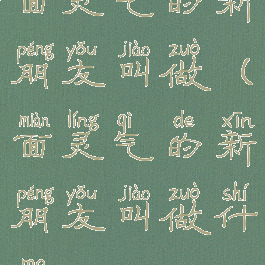 面更乞的新
péng yǒu jiào zuò
朋友叫做（
màn líng qì de xīn
面灵气的新
péng yǒu jiào zuò shí
朋友叫做什